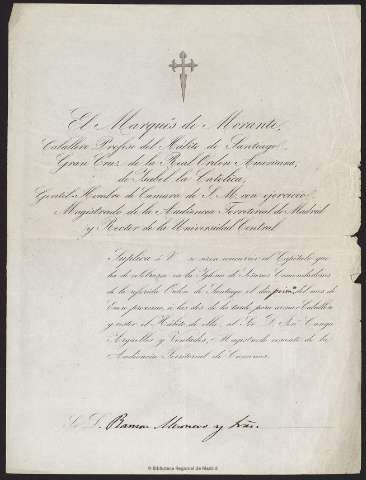 El Marqués de Morante,
Caballero Profeso del Hábito de Santiago,
Gran Cruz de la Real Orden Americana,
de Isabel la Católica,
Gentil-Hombre de Cámara de S. M. con ejercicio,
Magistrado de la Audiencia Territorial de Madrid
y Rector de la Universidad Central
Suplica á V. se sirva concurrir al Capítulo que
ha de celebrarse en la Iglesia de Señoras Comendadoras
de la referida Orden de Santiago el día prim.º del mes de
Enero próximo, á las dos de la tarde, para armar Caballero
y vestir el Hábito de ella, al Sor. D. José Canga
Argüelles y Ventades, Magistrado cesante de la
Audiencia Territorial de Canarias.
Sr. D. Ramon y
© Biblioteca Regional de Madrid